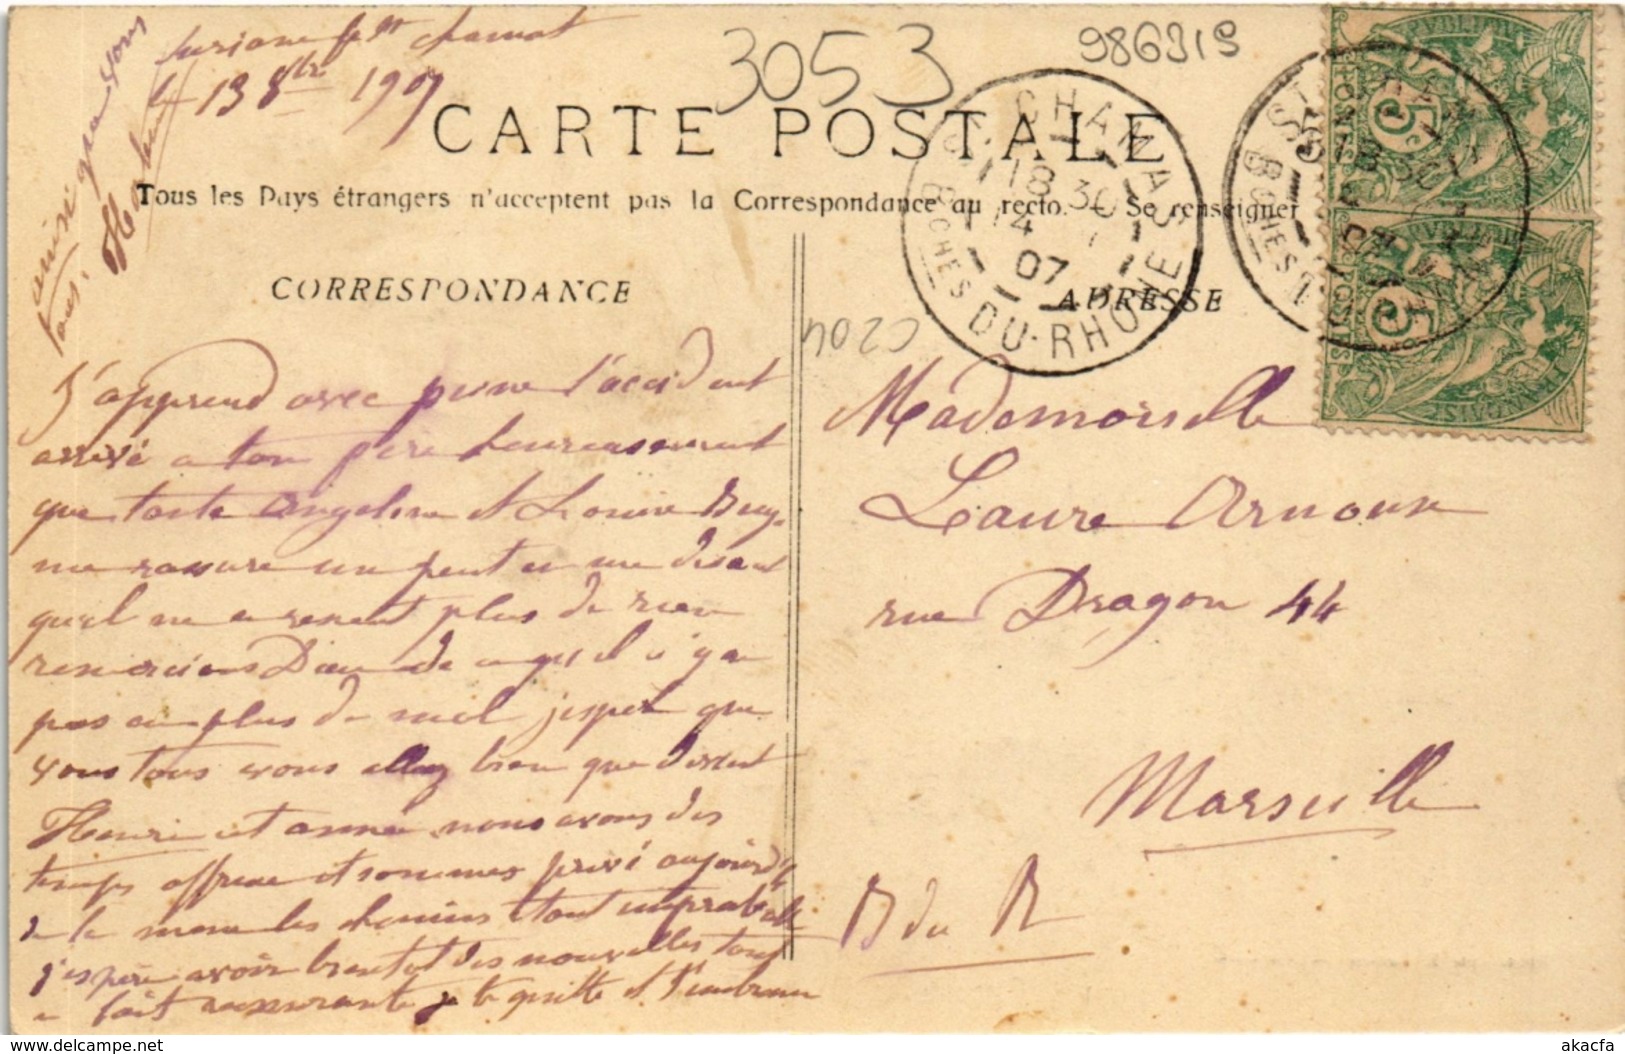 3053
986919
le 13 8bre 1907
CARTE POSTALE
Tous les Pays étrangers n'acceptent pas la Correspondance au recto. — Se renseigner
CORRESPONDANCE
ADRESSE
ST CHAMAS
18 30
14
07
BCHES DU-RHONE
ainsi que vous
tous.
C204
J'apprend avec peine l'accident
arrivé a ton père heureusement
que tante Angeline et Louise
me rassure un peut en me disant
quil ne a resent plus de rien
remercions Dieu de ce qu'il i y a
pas eu plus de mal j'esper que
vous tous vous allez bien que disent
Henri et année nous avons des
temps affreux et sommes privé aujourd'h
de la messe les chemins étant impraticable
j'espère avoir bientot des nouvelles tout
a fait rassurante je te quitte et t'embrasse
Mademoiselle
Laure Arnoux
rue Dragon 44
Marseille
B du R
REPUBLIQUE FRANÇAISE
POSTES
5
5
delcampe.net
akacfa